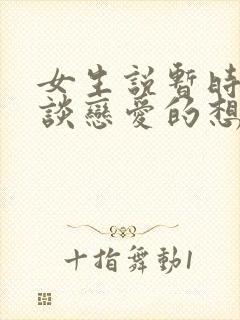 女生說暫時
談戀愛的想
十指舞動1